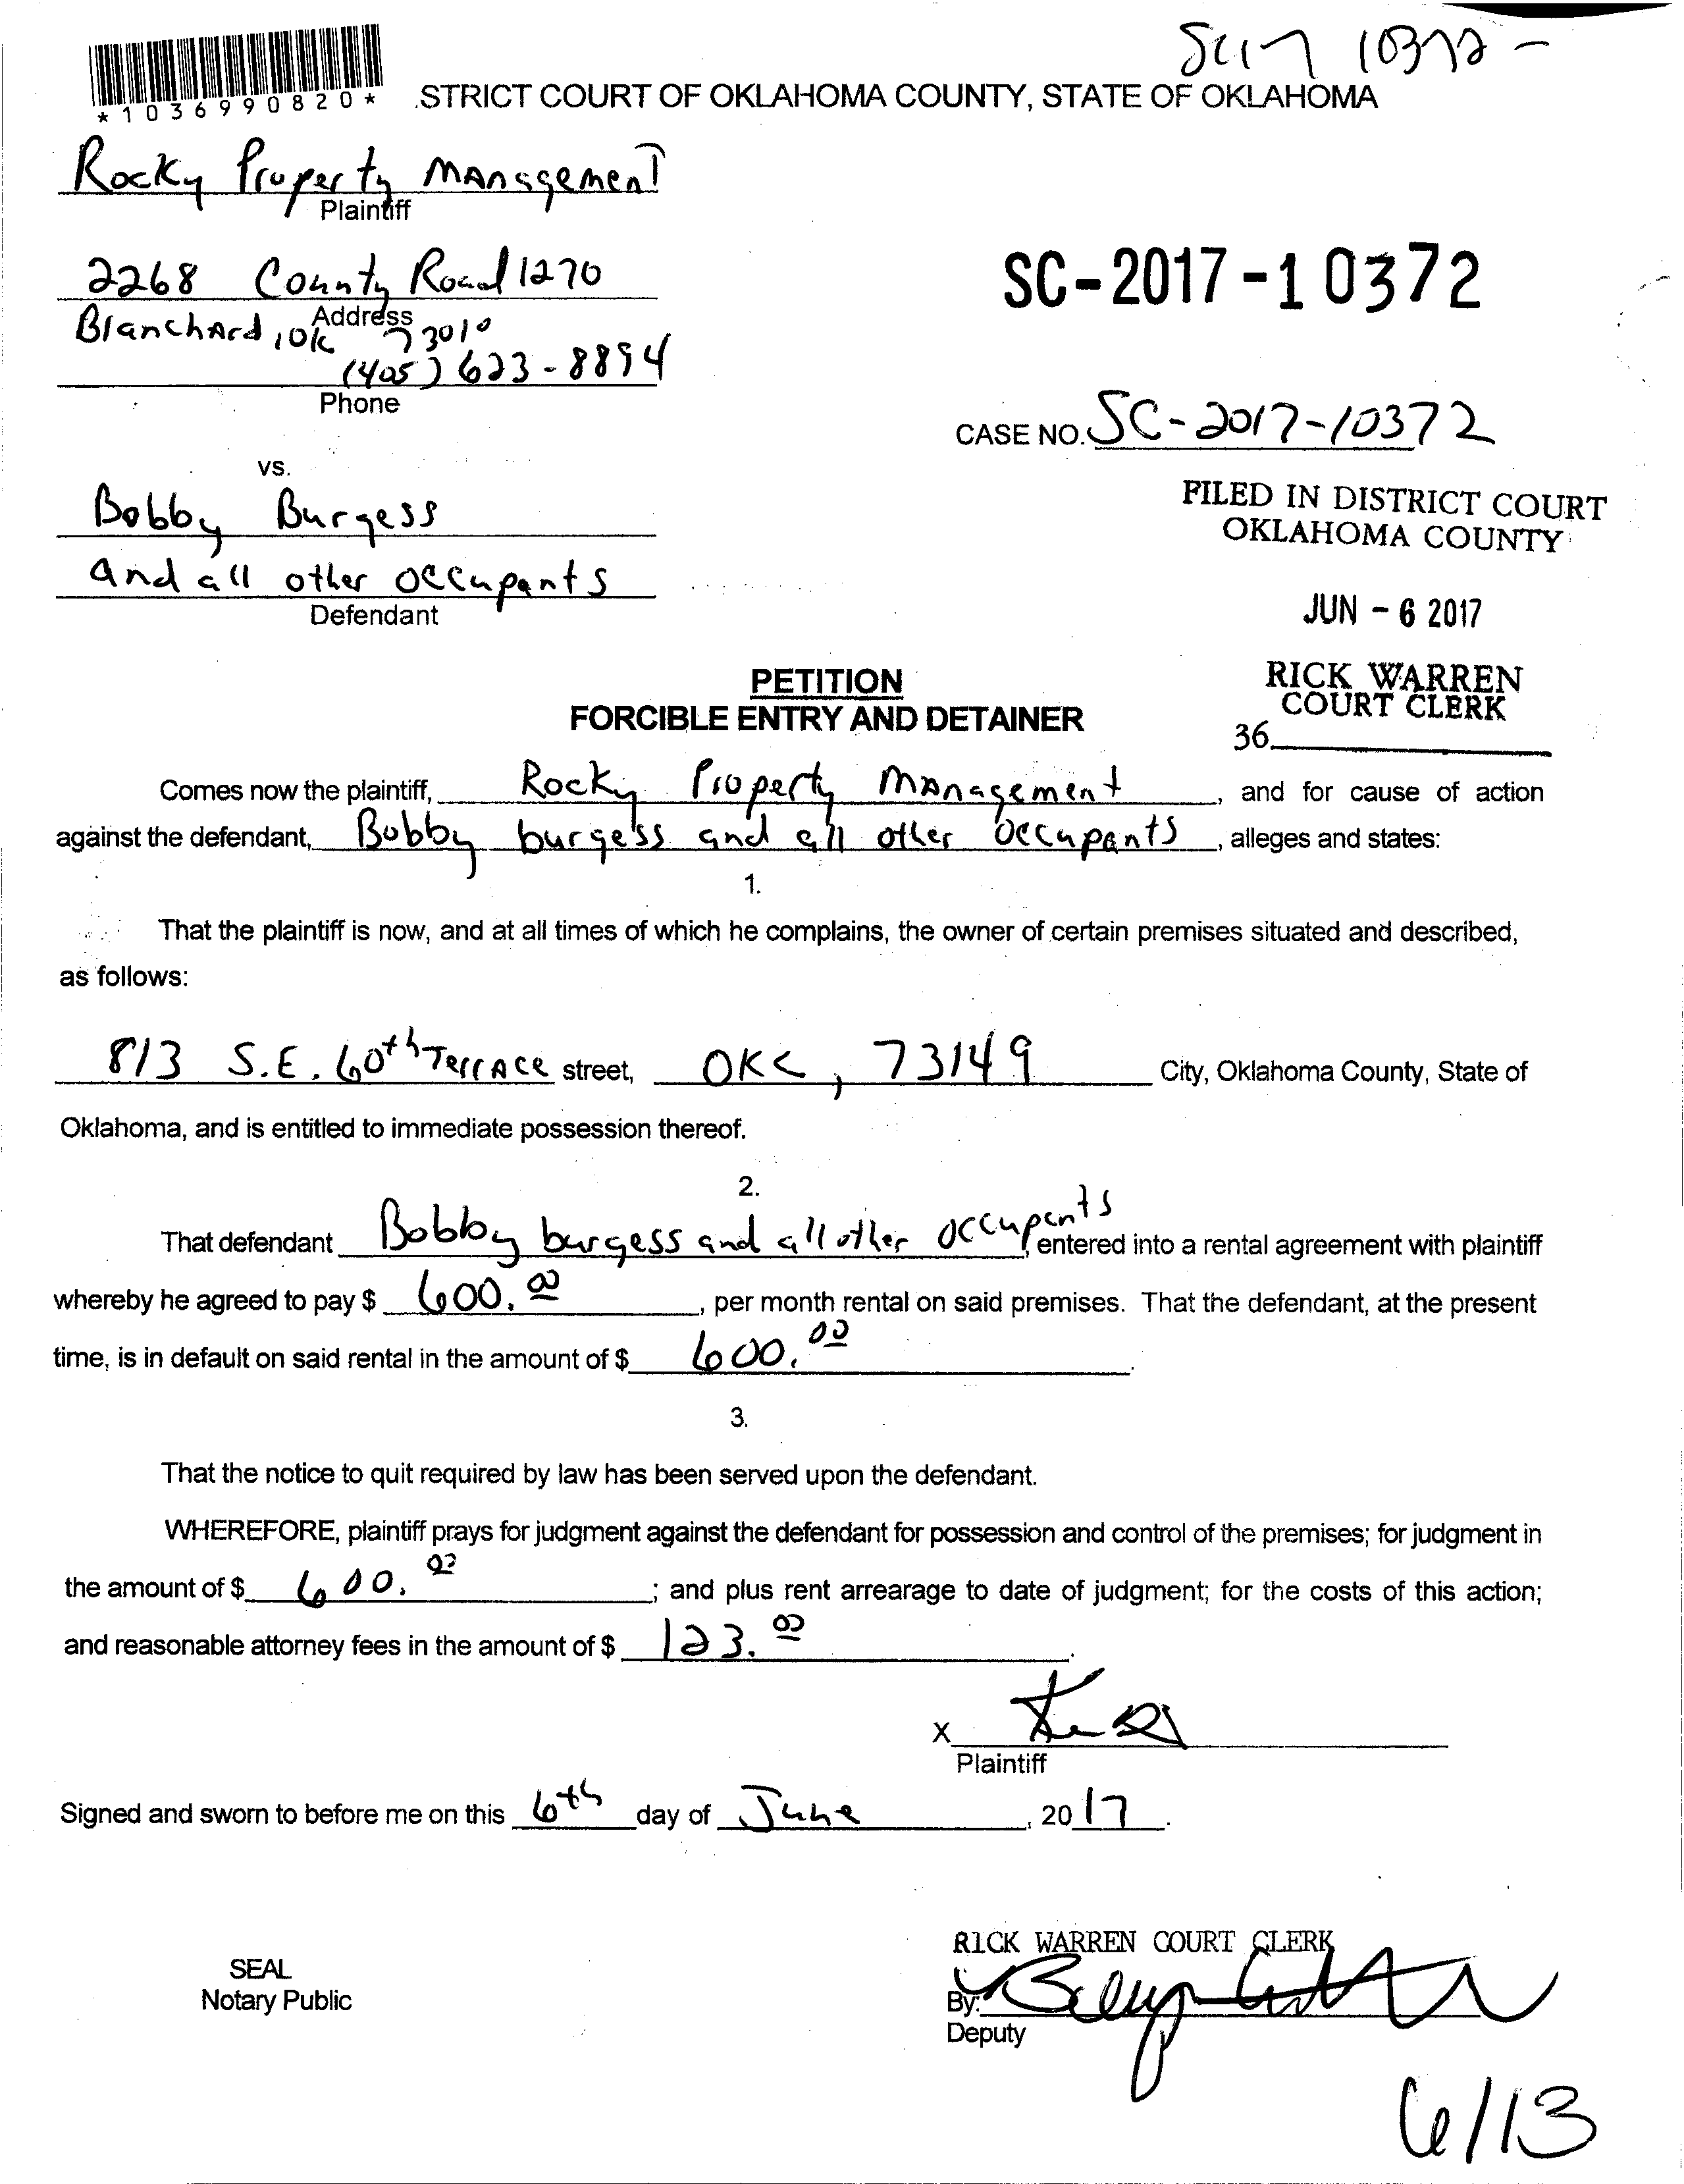 SC17 10372 -
*1036990820*
.STRICT COURT OF OKLAHOMA COUNTY, STATE OF OKLAHOMA
Rocky Property Management
Plaintiff
2268 County Road 1270
Address
Blanchard, OK 73010
(405) 623-8894
Phone
SC-2017-10372
CASE NO. SC-2017-10372
vs.
Bobby Burgess
and all other occupants
Defendant
FILED IN DISTRICT COURT
OKLAHOMA COUNTY
JUN - 6 2017
RICK WARREN
COURT CLERK
36
PETITION
FORCIBLE ENTRY AND DETAINER
Comes now the plaintiff, Rocky Property Management, and for cause of action
against the defendant, Bobby burgess and all other occupants, alleges and states:
1.
That the plaintiff is now, and at all times of which he complains, the owner of certain premises situated and described,
as follows:
813 S.E. 60th Terrace street, OKC, 73149 City, Oklahoma County, State of
Oklahoma, and is entitled to immediate possession thereof.
2.
That defendant Bobby burgess and all other occupants, entered into a rental agreement with plaintiff
whereby he agreed to pay $ 600.00, per month rental on said premises. That the defendant, at the present
time, is in default on said rental in the amount of $ 600.00.
3.
That the notice to quit required by law has been served upon the defendant.
WHEREFORE, plaintiff prays for judgment against the defendant for possession and control of the premises; for judgment in
the amount of $ 600.00; and plus rent arrearage to date of judgment; for the costs of this action;
and reasonable attorney fees in the amount of $ 123.00.
X
Plaintiff
Signed and sworn to before me on this 6th day of June, 2017.
RICK WARREN COURT CLERK
SEAL
Notary Public
By:
Deputy
6/13